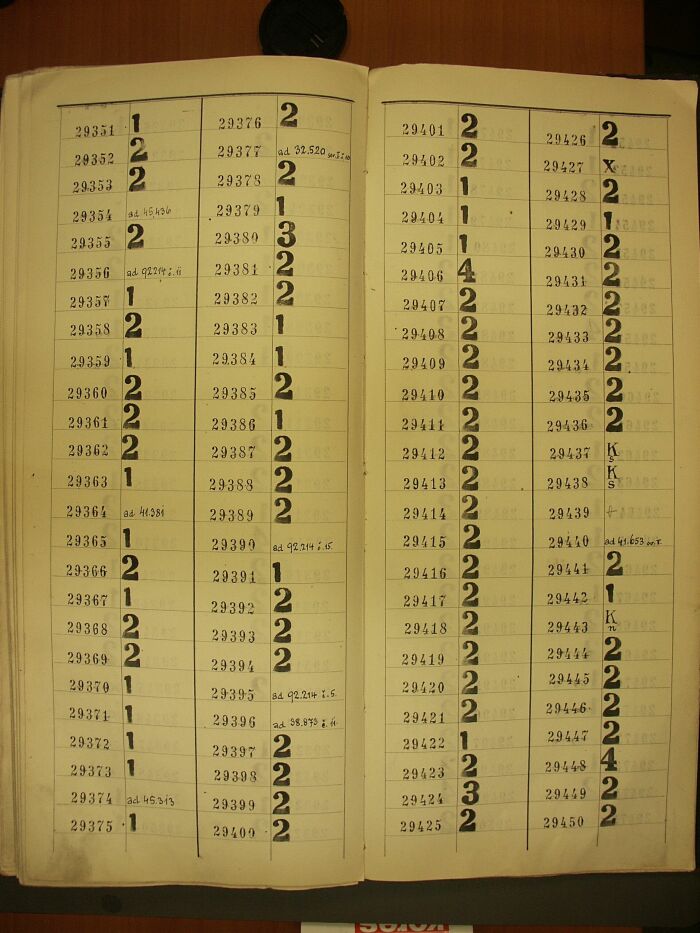 29351 1
29352 2
29353 2
29354 ad 45.436
29355 2
29356 ad 92214 i. 11
29357 1
29358 2
29359 1
29360 2
29361 2
29362 2
29363 1
29364 ad 41.381
29365 1
29366 2
29367 1
29368 2
29369 2
29370 1
29371 1
29372 1
29373 1
29374 ad 45.313
29375 1
29376 2
29377 ad 32.520
29378 2
29379 1
29380 3
29381 2
29382 2
29383 1
29384 1
29385 2
29386 1
29387 2
29388 2
29389 2
29390 ad 92.214 i. 15.
29391 1
29392 2
29393 2
29394 2
29395 ad 92.214 i. 5.
29396 ad 38.873 i. 11.
29397 2
29398 2
29399 2
29400 2
29401 2
29402 2
29403 1
29404 1
29405 1
29406 4
29407 2
29408 2
29409 2
29410 2
29411 2
29412 2
29413 2
29414 2
29415 2
29416 2
29417 2
29418 2
29419 2
29420 2
29421 2
29422 1
29423 2
29424 3
29425 2
29426 2
29427 X
29428 2
29429 1
29430 2
29431 2
29432 2
29433 2
29434 2
29435 2
29436 2
29437 K s
29438 K s
29439 +
29440 ad 41.653
29441 2
29442 1
29443 K n
29444 2
29445 2
29446 2
29447 2
29448 4
29449 2
29450 2